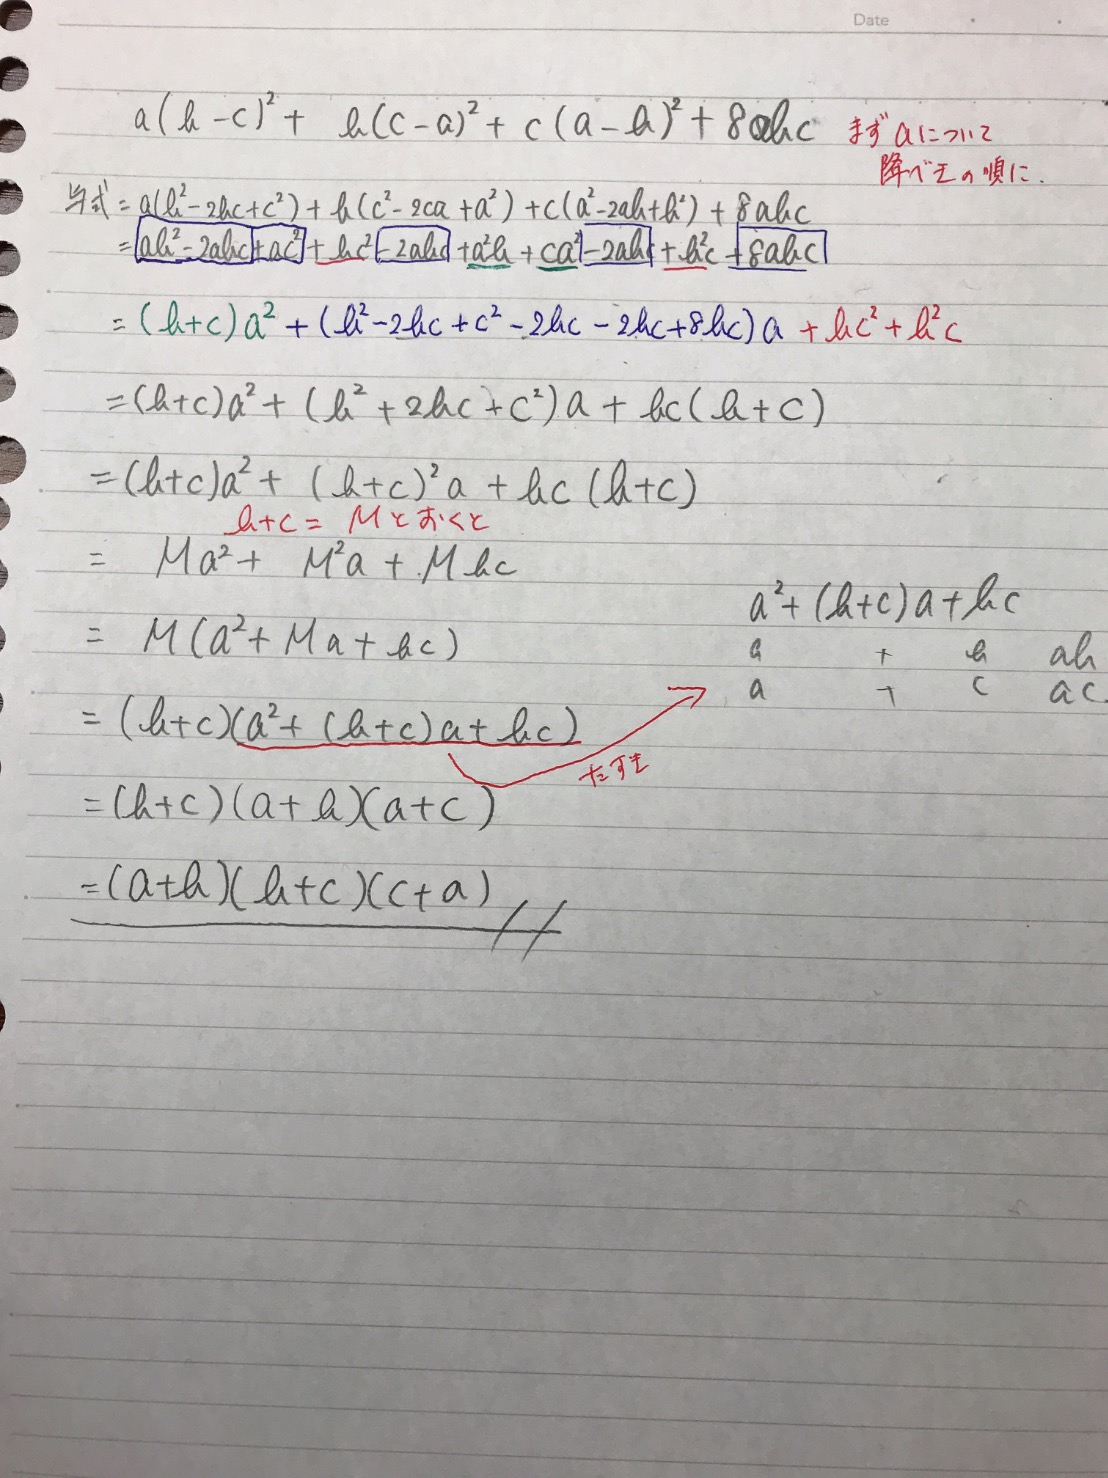 Date
a(b-c)²+ b(c-a)²+ c(a-b)²+8abc まずaについて
降べきの順に.
与式=a(b²-2bc+c²)+b(c²-2ca+a²)+c(a²-2ab+b²)+8abc
=ab²-2abc+ac²+bc²-2abc+a²b+ca²-2abc+b²c+8abc
=(b+c)a²+(b²-2bc+c²-2bc-2bc+8bc)a+bc²+b²c
=(b+c)a²+(b²+2bc+c²)a+bc(b+c)
=(b+c)a²+(b+c)²a+bc(b+c)
b+c=Mとおくと
= Ma²+ M²a+Mbc
= M(a²+Ma+bc)
=(b+c)(a²+(b+c)a+bc)
たすき
=(b+c)(a+b)(a+c)
=(a+b)(b+c)(c+a)
a²+(b+c)a+bc
a + b ab
a + c ac